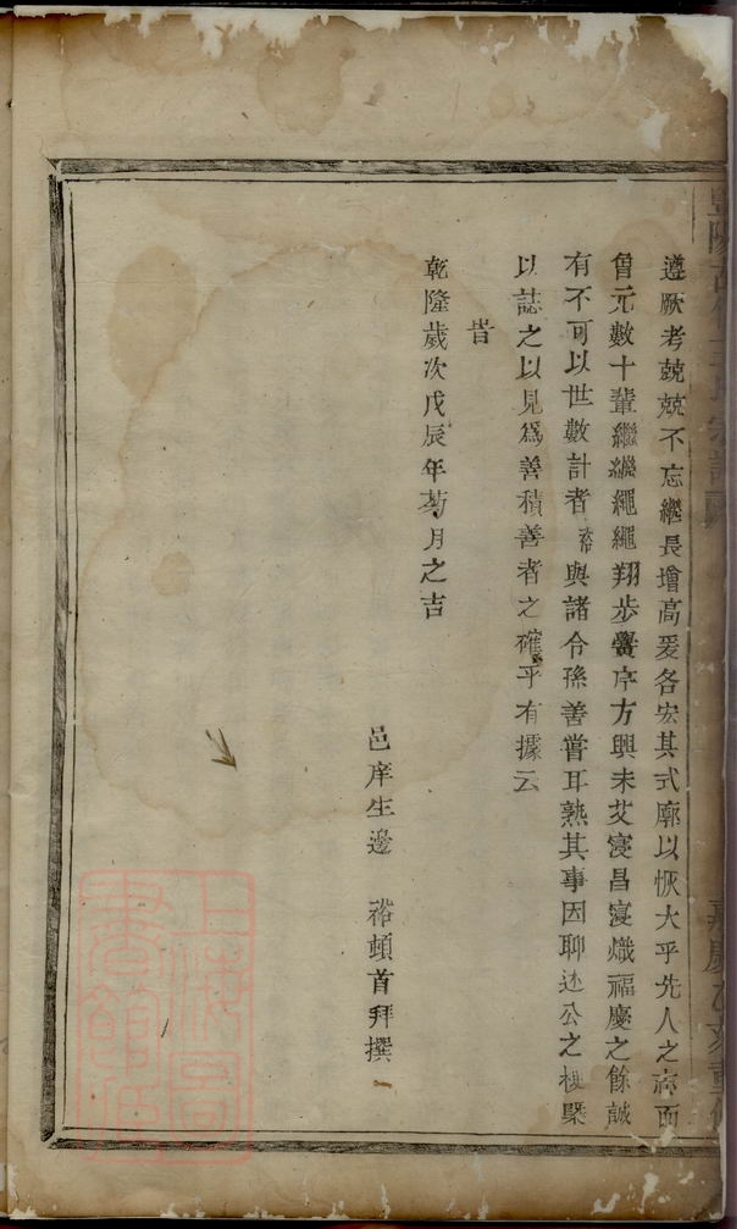 遵厥考兢兢不忘繼長增高爰各宏其式廓以恢大乎先人之 而
曾元數十輩繼繼繩繩翔步黌序方興未艾寖昌寖熾福慶之餘誠
有不可以世數計者裕與諸令孫善嘗耳熟其事因聊述公之梗槩
以誌之以見爲善積善者之確乎有據云
旹
乾隆歲次戊辰年菊月之吉
邑庠生邊 裕頓首拜撰
上海圖書館藏